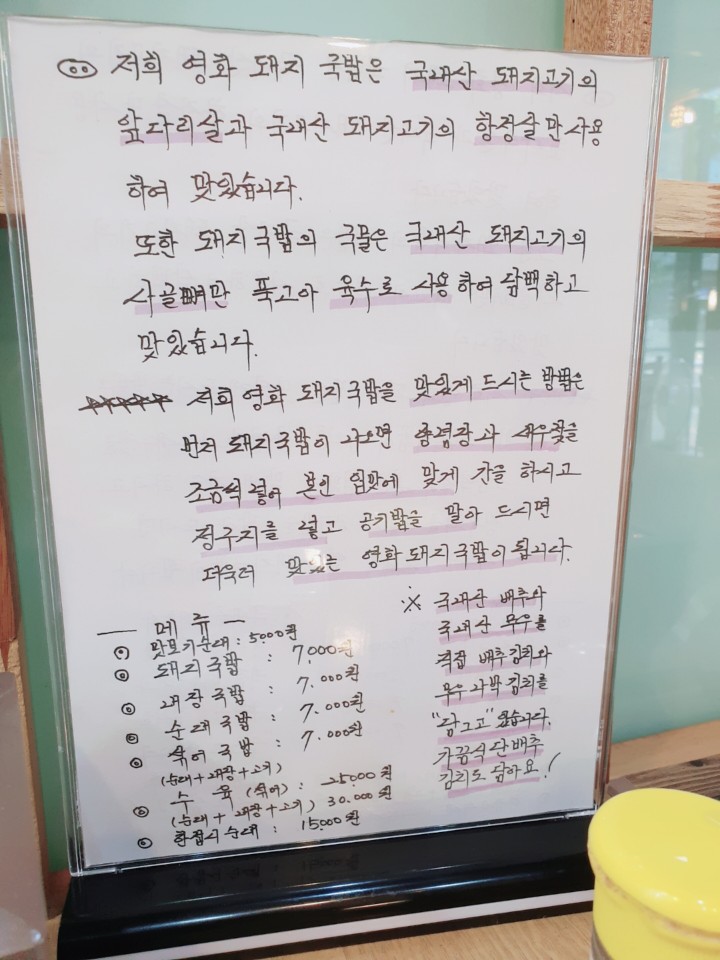 저희 영화 돼지 국밥은 국내산 돼지고기의
앞다리살과 국내산 돼지고기의 항정살만 사용
하여 맛있습니다.
또한 돼지국밥의 국물은 국내산 돼지고기의
사골뼈만 푹고아 육수로 사용하여 담백하고
맛있습니다.
저희 영화 돼지국밥을 맛있게 드시는 방법은
먼저 돼지국밥이 나오면 양념장과 새우젓을
조금씩 넣어 본인 입맛에 맞게 간을 하시고
정구지를 넣고 공기밥을 말아 드시면
더욱더 맛있는 영화돼지국밥이 됩니다.
ㅡ 메뉴 ㅡ
맛보기순대 : 5000원
돼지국밥 : 7,000원
내장국밥 : 7.000원
순대국밥 : 7.000원
섞어국밥 : 7.000원
(순대+내장+고기)
수 육 (섞어) : 25000원
(순대+내장+고기) 30.000원
한접시순대 : 15000원
※ 국내산 배추와
국내산 무우를
직접 배추김치와
무우 깍박김치를
"담그고" 있습니다.
가끔식 단배추
김치도 담아요!